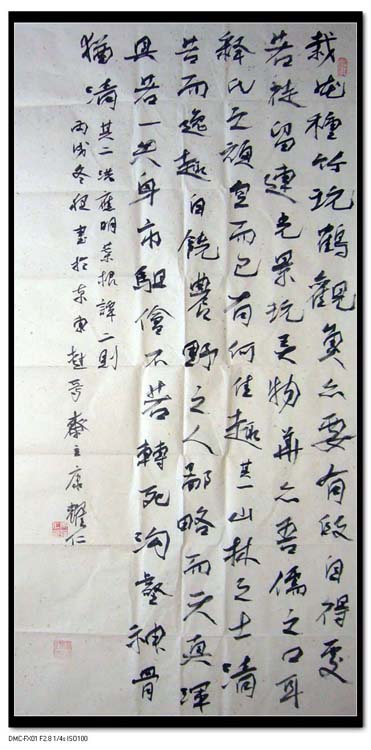 栽花種竹玩鶴觀魚亦要有段自得處
若徒留連光景玩弄物華亦吾儒之口耳
释氏之頑空而已有何佳趣其一山林之士清
苦而逸趣自饒農野之人鄙略而天真渾
具若一失身市駔儈不若轉死溝壑神骨
猶清其二洪應明菜根譚二則
丙戌冬夜書於京東
DMC-FX01 F2.8 1/4s ISO100